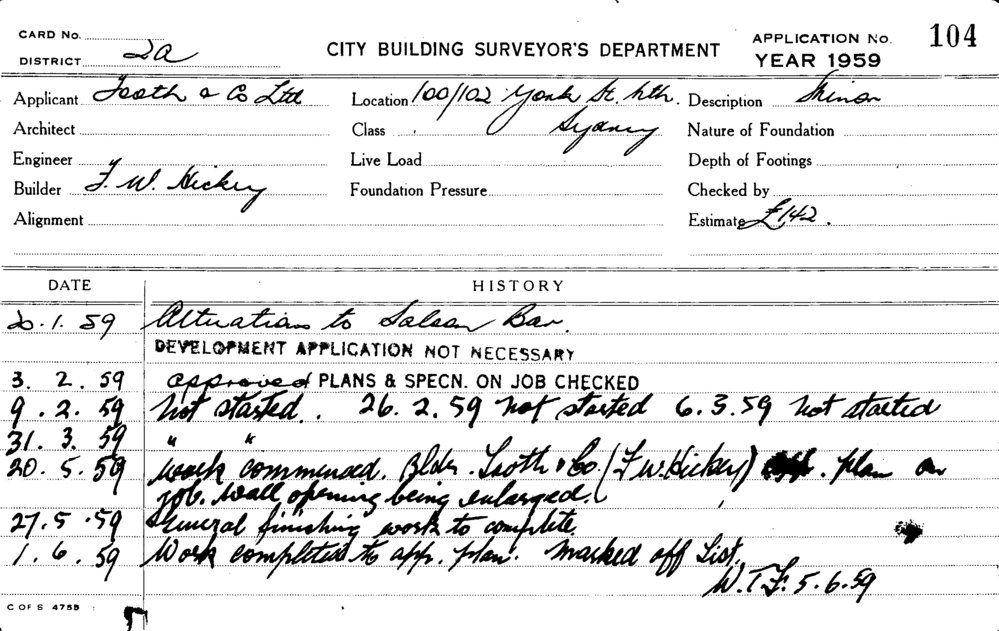 CARD No.
DISTRICT 2a
CITY BUILDING SURVEYOR'S DEPARTMENT
APPLICATION No. 104
YEAR 1959
Applicant Tooth & Co Ltd
Location 100/102 York St. Nth. Sydney
Description Minor
Architect
Class
Nature of Foundation
Engineer
Live Load
Depth of Footings
Builder F. W. Hickey
Foundation Pressure
Checked by
Alignment
Estimate £142.
DATE HISTORY
20.1.59 Alterations to Saloon Bar.
DEVELOPMENT APPLICATION NOT NECESSARY
3.2.59 approved PLANS & SPECN. ON JOB CHECKED
9.2.59 Not started. 26.2.59 Not started 6.3.59 Not started
31.3.59 " "
20.5.59 Work commenced. Bldr. Tooth & Co. (F.W. Hickey) app. plan on
job. Wall opening being enlarged.
27.5.59 General finishing work to complete
1.6.59 Work completed to app. plan. Marked off List.
W.T.F. 5.6.59
C OF S 4755